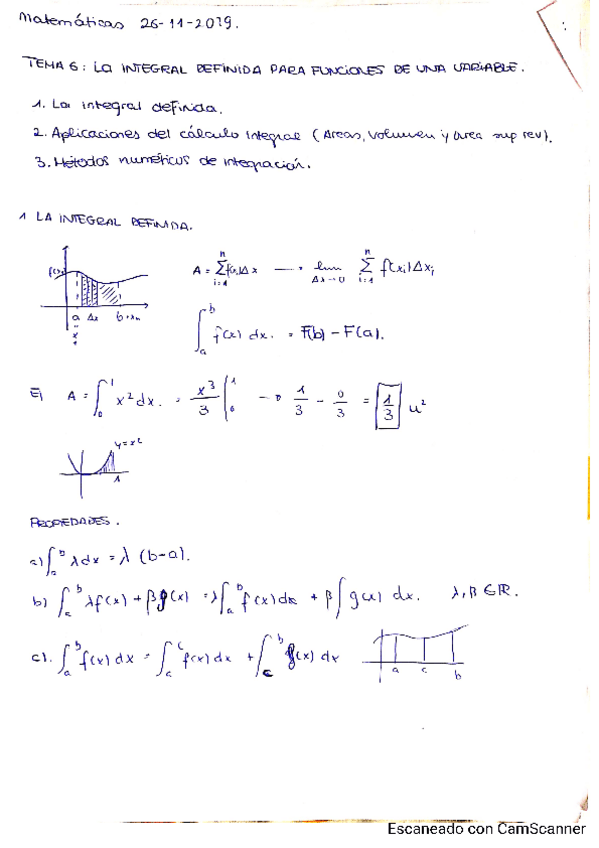 Matemáticas 26-11-2019.
TEMA 6: LA INTEGRAL DEFINIDA PARA FUNCIONES DE UNA VARIABLE.
1. La integral definida.
2. Aplicaciones del cálculo integral (Areas, volumen y area sup rev).
3. Métodos numéricos de integración.
1 LA INTEGRAL DEFINIDA.
A = ∑_{i=1}^{n} f(x_i)Δx → lim_{Δx→0} ∑_{i=1}^{n} f(x_i)Δx_i
f(x)
a Δx b=x_n
∫_a^b f(x) dx. = F(b) - F(a).
Ej A = ∫_0^1 x² dx. = x³/3 |_0^1 → 1/3 - 0/3 = 1/3 u²
y=x²
1
PROPIEDADES.
a) ∫_a^b λdx = λ (b-a).
b) ∫_a^b λf(x) + βg(x) = λ∫_a^b f(x)dx + β∫g(x) dx. λ,β ∈ℝ.
c). ∫_a^b f(x) dx = ∫_a^c f(x) dx + ∫_c^b f(x) dx
a c b
Escaneado con CamScanner